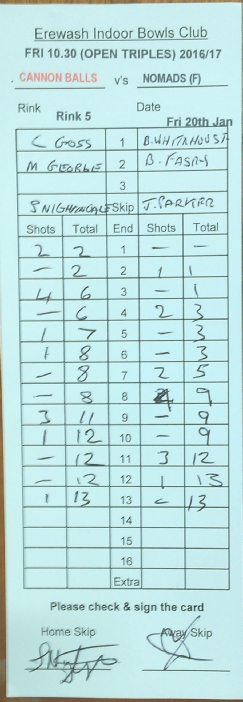 Erewash Indoor Bowls Club
FRI 10.30 (OPEN TRIPLES) 2016/17
CANNON BALLS v's NOMADS (F)
Rink Rink 5 Date Fri 20th Jan
C GOSS 1 B. WHITEHOUSE
M GEORGE 2 B.
3
S NIGHTINGALE Skip J. PARKER
Shots Total End Shots Total
2 2 1 — —
— 2 2 1 1
4 6 3 — 1
— 6 4 2 3
1 7 5 — 3
1 8 6 — 3
— 8 7 2 5
— 8 8 4 9
3 11 9 — 9
1 12 10 — 9
— 12 11 3 12
— 12 12 1 13
1 13 13 — 13
14
15
16
Extra
Please check & sign the card
Home Skip Away Skip